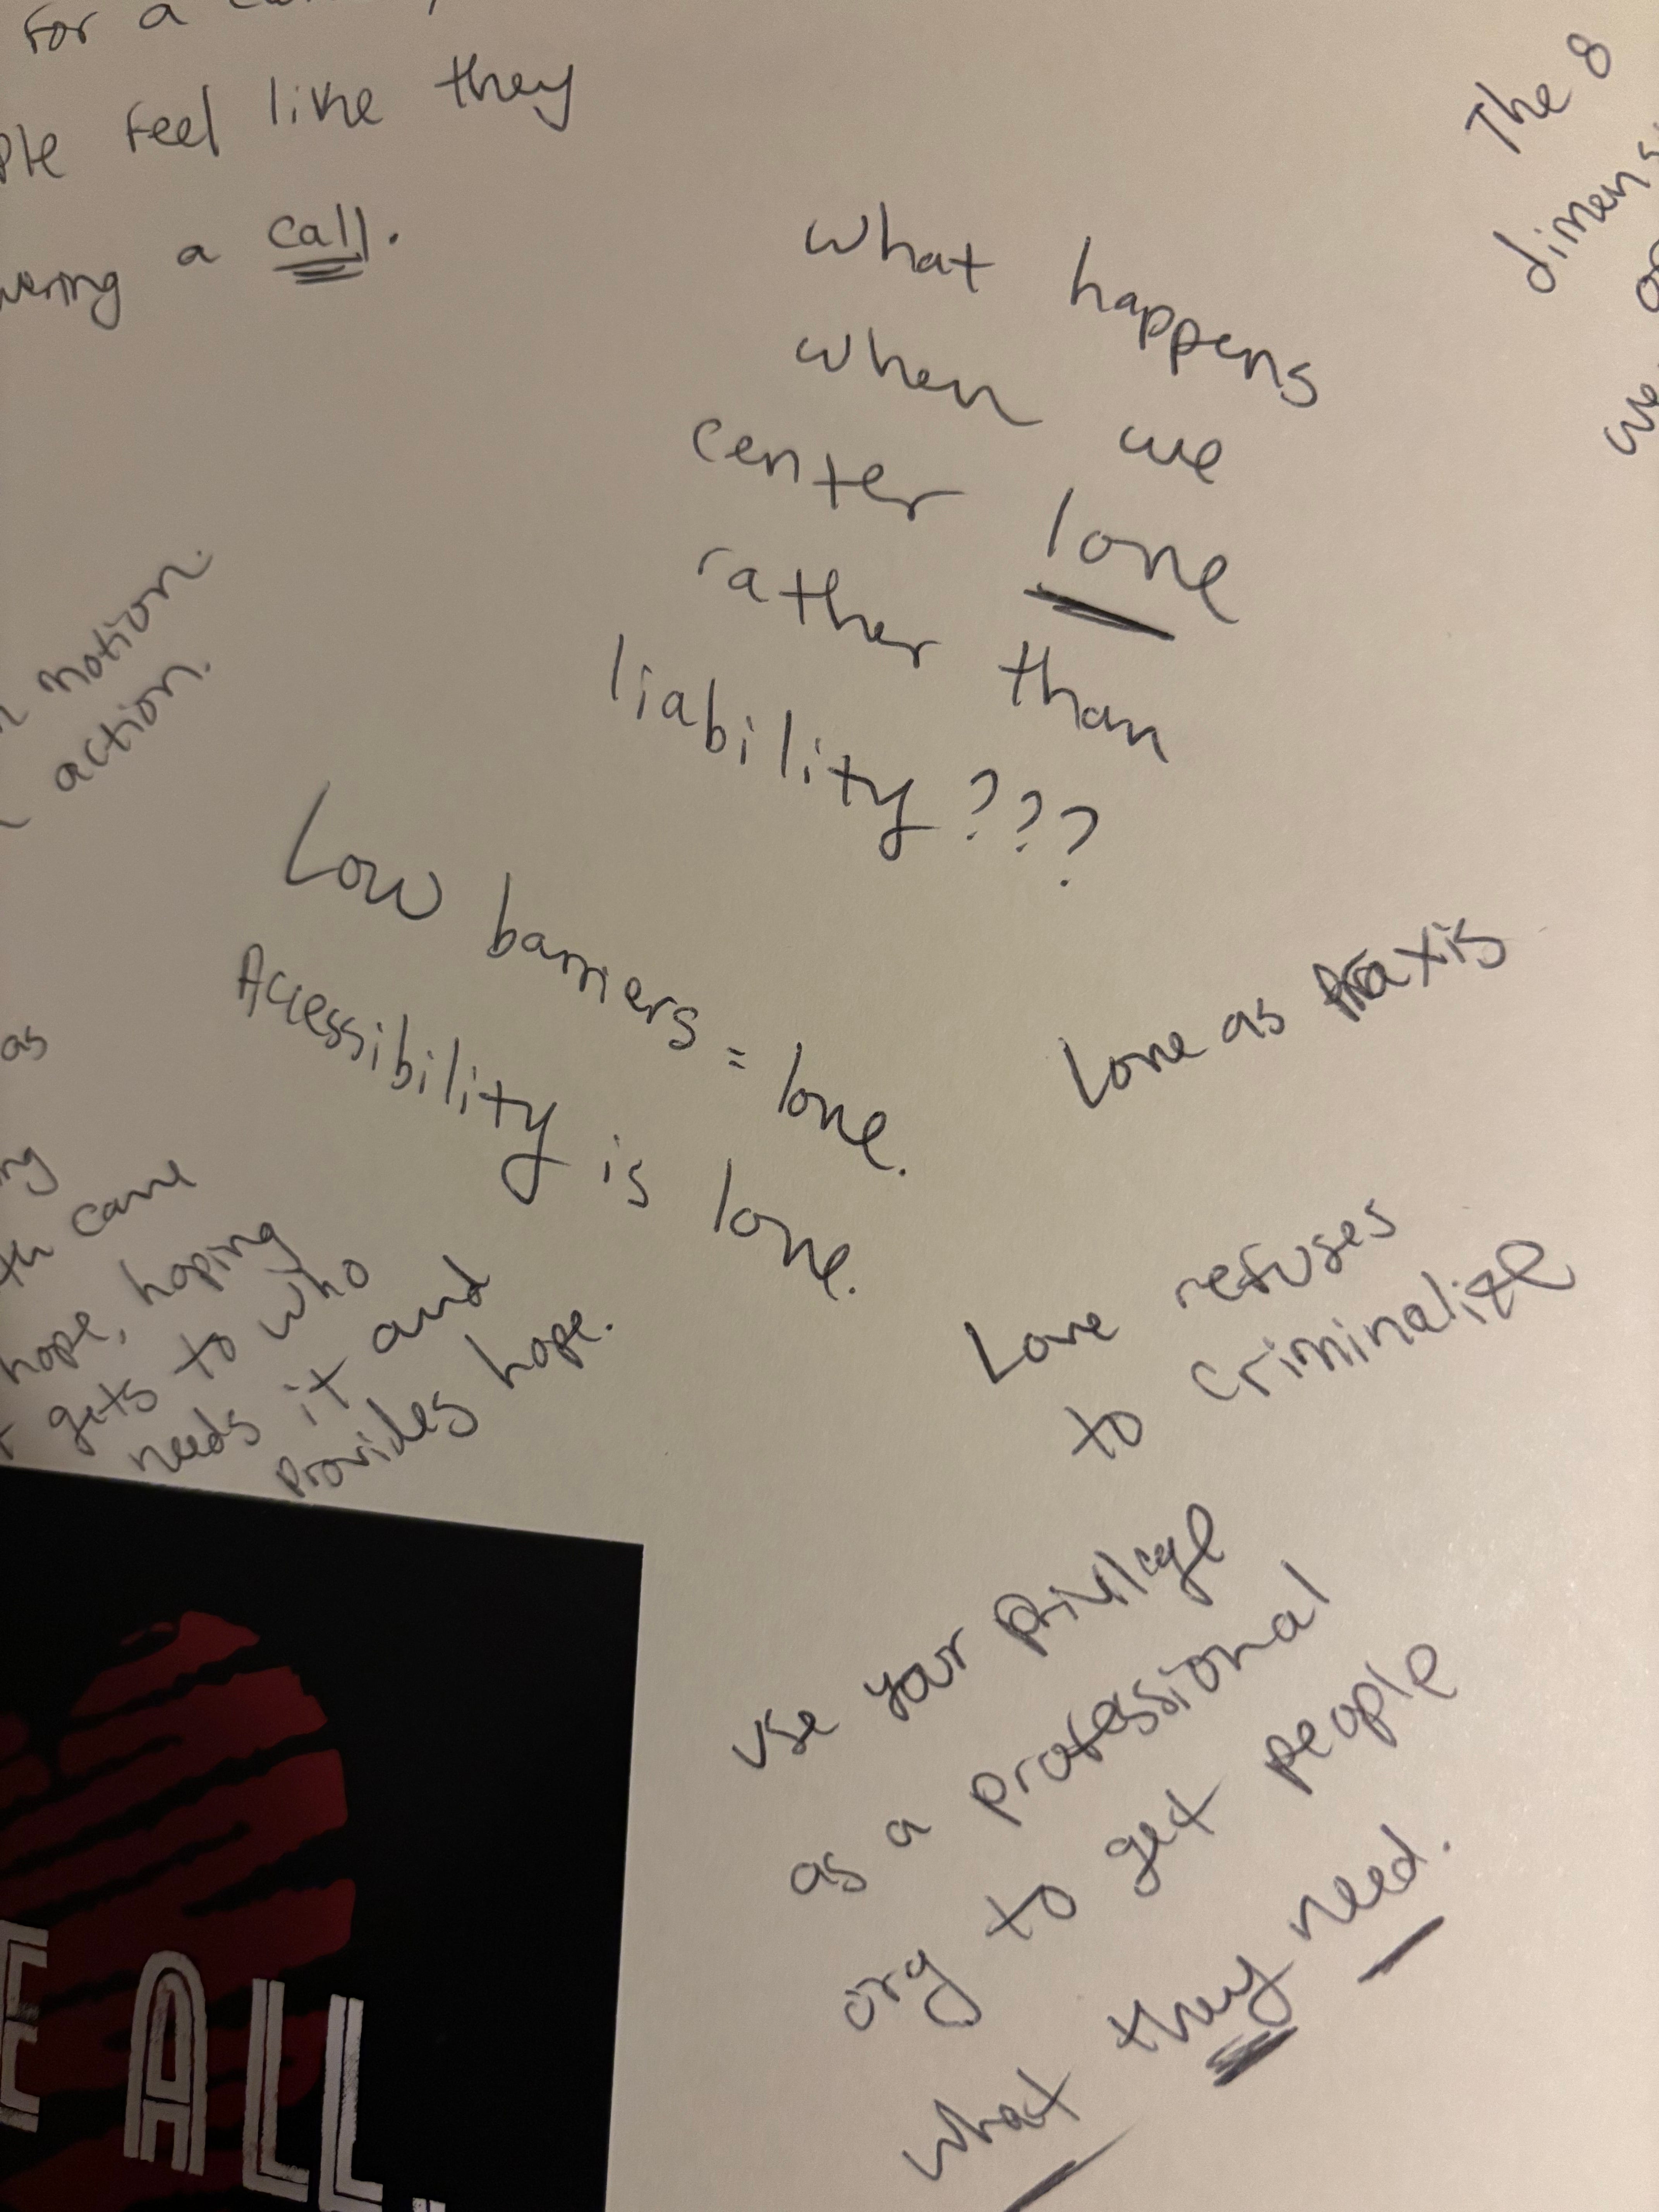 For a
ple feel like they
wering a call.
The 8
dimens
we
what happens
when we
center love
rather than
liability???
notion.
action.
Low barriers = love.
Accessibility is love.
Love as Praxis
as
ng
th care
hope, hoping
gets to who
needs it and
provides hope.
Love refuses
to criminalize
use your privilage
as a professional
org to get people
what they need.
E ALL.